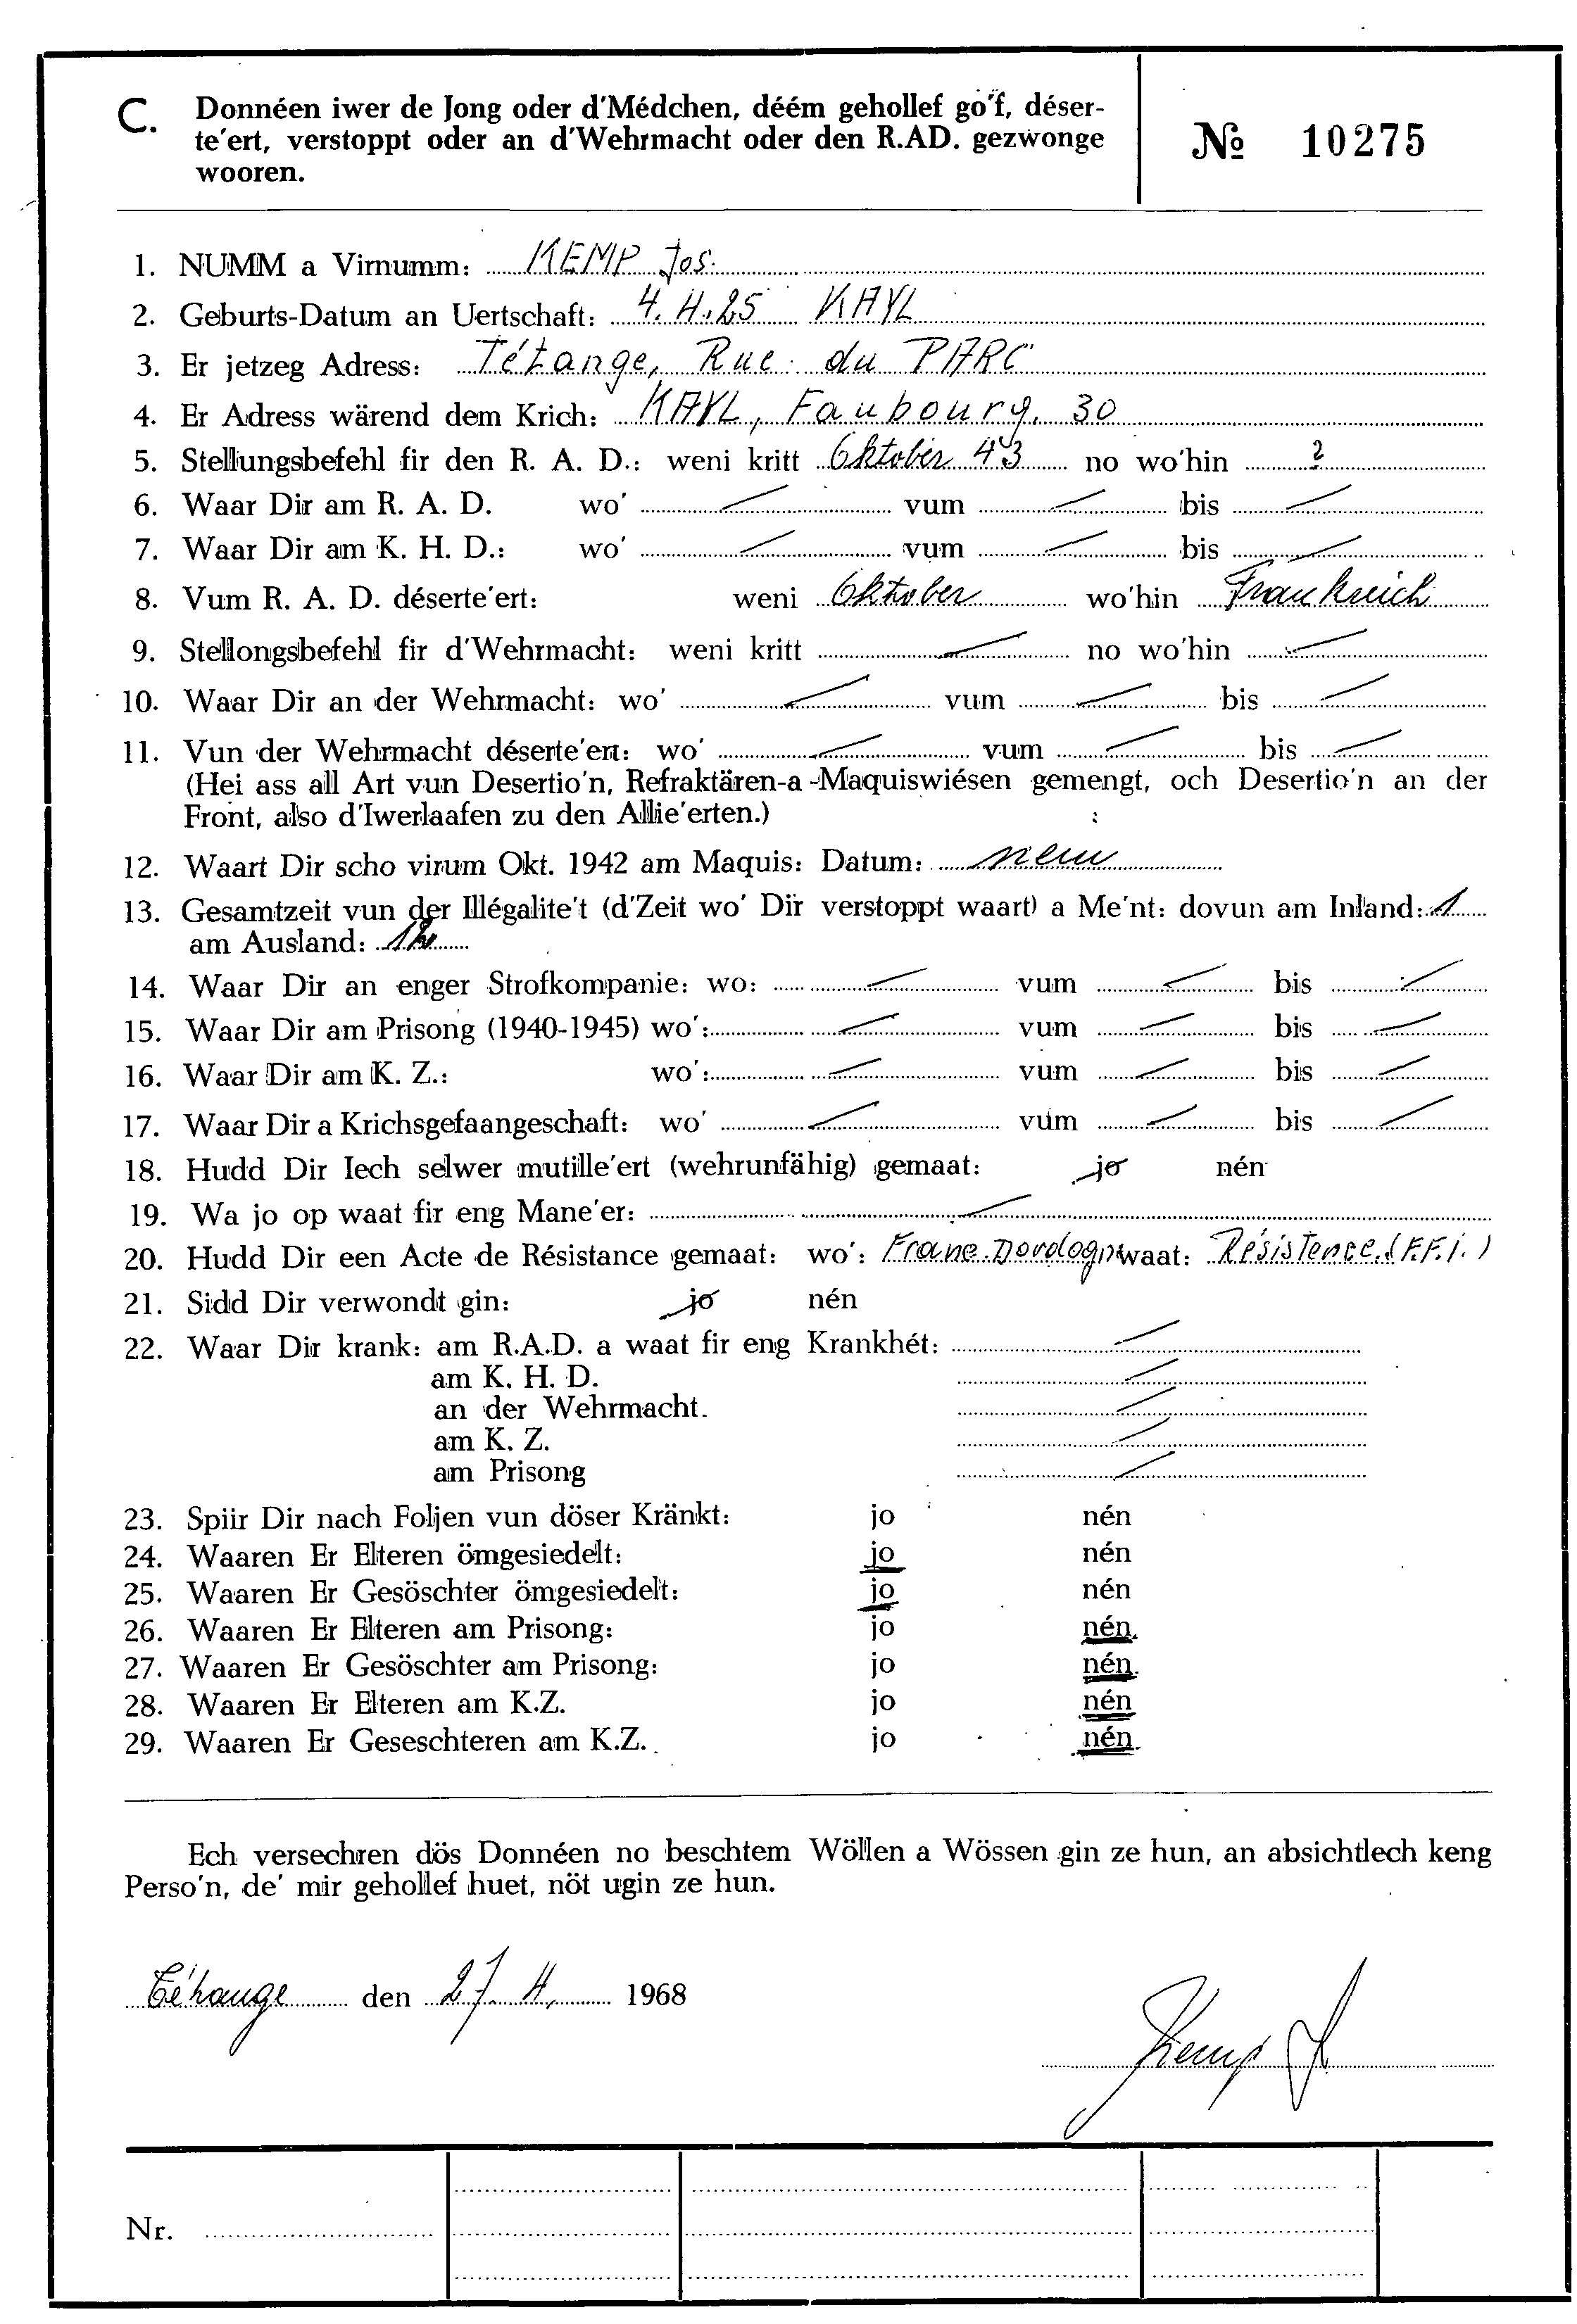 C. Donnéen iwer de Jong oder d'Médchen, déém gehollef go'f, déser-
te'ert, verstoppt oder an d'Wehrmacht oder den R.AD. gezwonge
wooren.
№ 10275
1. NUMM a Virnumm: KEMP Jos.
2. Geburts-Datum an Uertschaft: 4.4.25 KAYL
3. Er jetzeg Adress: Tétange, Rue du PARC
4. Er Adress wärend dem Krich: KAYL, Faubourg, 30
5. Stellungsbefehl fir den R. A. D.: weni kritt Oktober 43 no wo'hin ?
6. Waar Dir am R. A. D. wo' — vum — bis —
7. Waar Dir am K. H. D.: wo' — vum — bis —
8. Vum R. A. D. déserte'ert: weni Oktober wo'hin Frankreich
9. Stellongsbefehl fir d'Wehrmacht: weni kritt — no wo'hin —
10. Waar Dir an der Wehrmacht: wo' — vum — bis —
11. Vun der Wehrmacht déserte'ert: wo' — vum — bis —
(Hei ass all Art vun Desertio'n, Refraktären-a-Maquiswiésen gemengt, och Desertio'n an der
Front, also d'Iwerlaafen zu den Allie'erten.)
12. Waart Dir scho virum Okt. 1942 am Maquis: Datum: nein
13. Gesamtzeit vun der Illégalite't (d'Zeit wo' Dir verstoppt waart) a Me'nt: dovun am Inland: 1
am Ausland:
14. Waar Dir an enger Strofkompanie: wo: — vum — bis —
15. Waar Dir am Prisong (1940-1945) wo': — vum — bis —
16. Waar Dir am K. Z.: wo': — vum — bis —
17. Waar Dir a Krichsgefaangeschaft: wo' — vum — bis —
18. Hudd Dir Iech selwer mutille'ert (wehrunfähig) gemaat: jo nén
19. Wa jo op waat fir eng Mane'er: —
20. Hudd Dir een Acte de Résistance gemaat: wo': Dordogn waat: Résistence (F.F.i.)
21. Sidd Dir verwondt gin: jo nén
22. Waar Dir krank: am R.A.D. a waat fir eng Krankhét: —
am K. H. D. —
an der Wehrmacht. —
am K. Z. —
am Prisong —
23. Spiir Dir nach Foljen vun döser Kränkt: jo nén
24. Waaren Er Elteren ömgesiedelt: jo nén
25. Waaren Er Gesöschter ömgesiedelt: jo nén
26. Waaren Er Elteren am Prisong: jo nén
27. Waaren Er Gesöschter am Prisong: jo nén
28. Waaren Er Elteren am K.Z. jo nén
29. Waaren Er Geseschteren am K.Z. jo nén
Ech versechren dös Donnéen no beschtem Wöllen a Wössen gin ze hun, an absichtlech keng
Perso'n, de' mir gehollef huet, nöt ugin ze hun.
Tétange den 27.4. 1968
Kemp J
Nr.